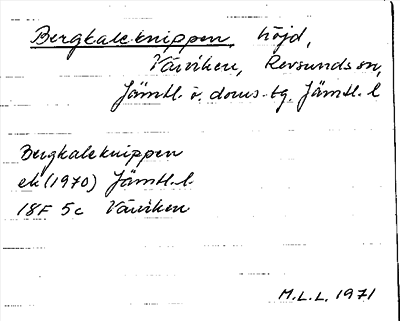 Bergkaleknippen, höjd,
Väviken, Revsunds sn,
Jämtl. ö. doms.-tg. Jämtl. l
Bergkaleknippen
ek (1970) Jämtl. l.
18F 5c Väviken
M.L.L. 1971